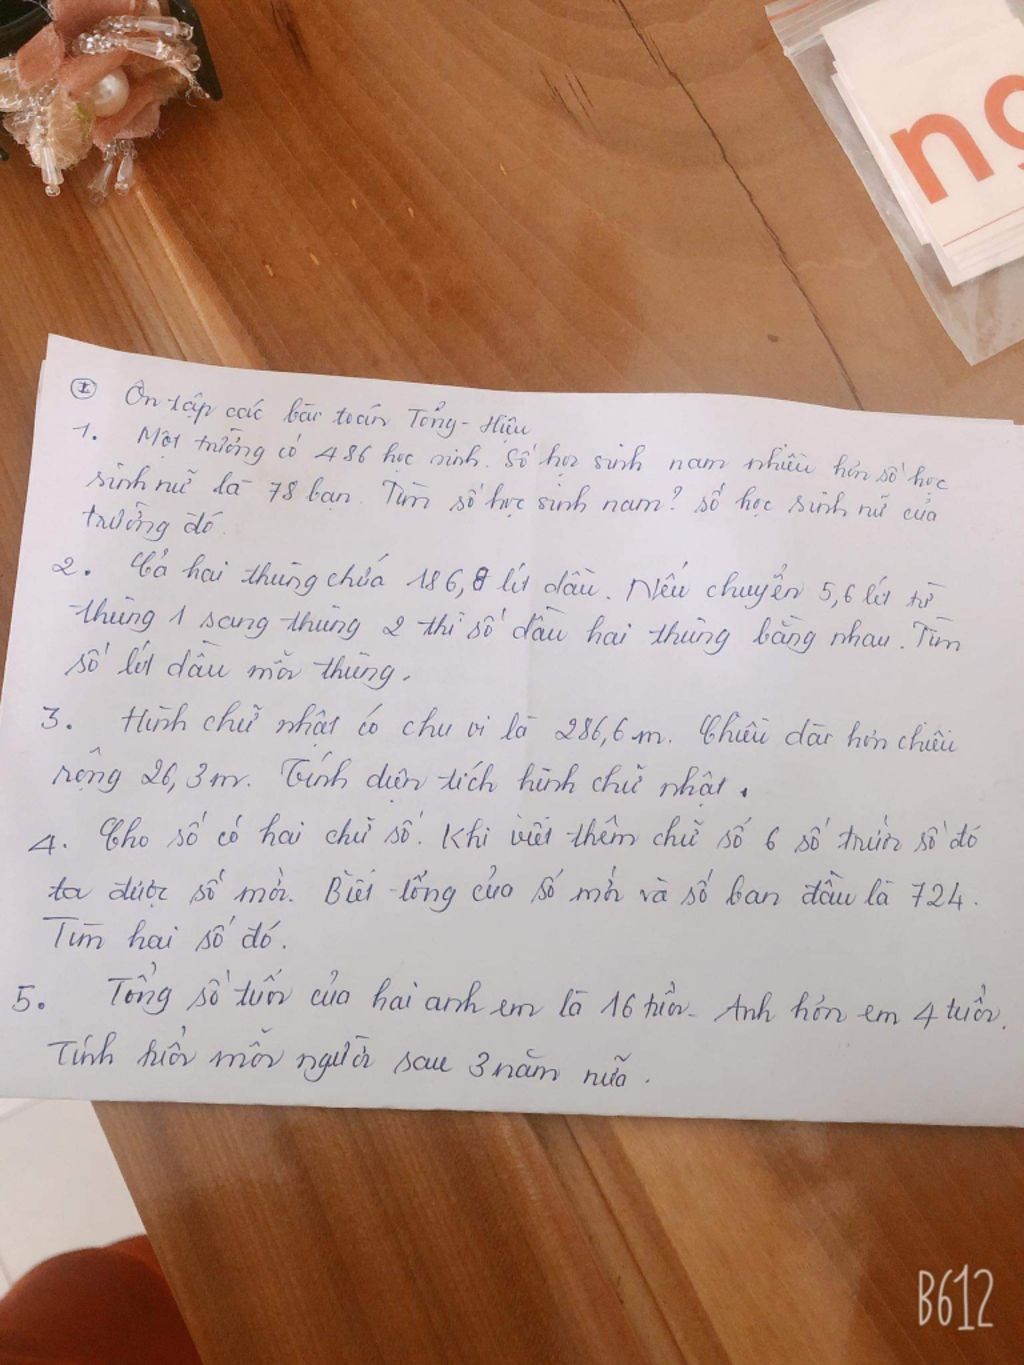 ng
I Ôn tập các bài toán Tổng - Hiệu
1. Một trường có 486 học sinh. Số học sinh nam nhiều hơn số học
sinh nữ là 78 bạn. Tìm số học sinh nam? số học sinh nữ của
trường đó.
2. Cả hai thùng chứa 186,8 lít dầu. Nếu chuyển 5,6 lít từ
thùng 1 sang thùng 2 thì số dầu hai thùng bằng nhau. Tìm
số lít dầu mỗi thùng.
3. Hình chữ nhật có chu vi là 286,6 m. Chiều dài hơn chiều
rộng 26,3m. Tính diện tích hình chữ nhật.
4. Cho số có hai chữ số. Khi viết thêm chữ số 6 số trước số đó
ta được số mới. Biết tổng của số mới và số ban đầu là 724.
Tìm hai số đó.
5. Tổng số tuổi của hai anh em là 16 tuổi. Anh hơn em 4 tuổi.
Tính tuổi mỗi người sau 3 năm nữa.
B612